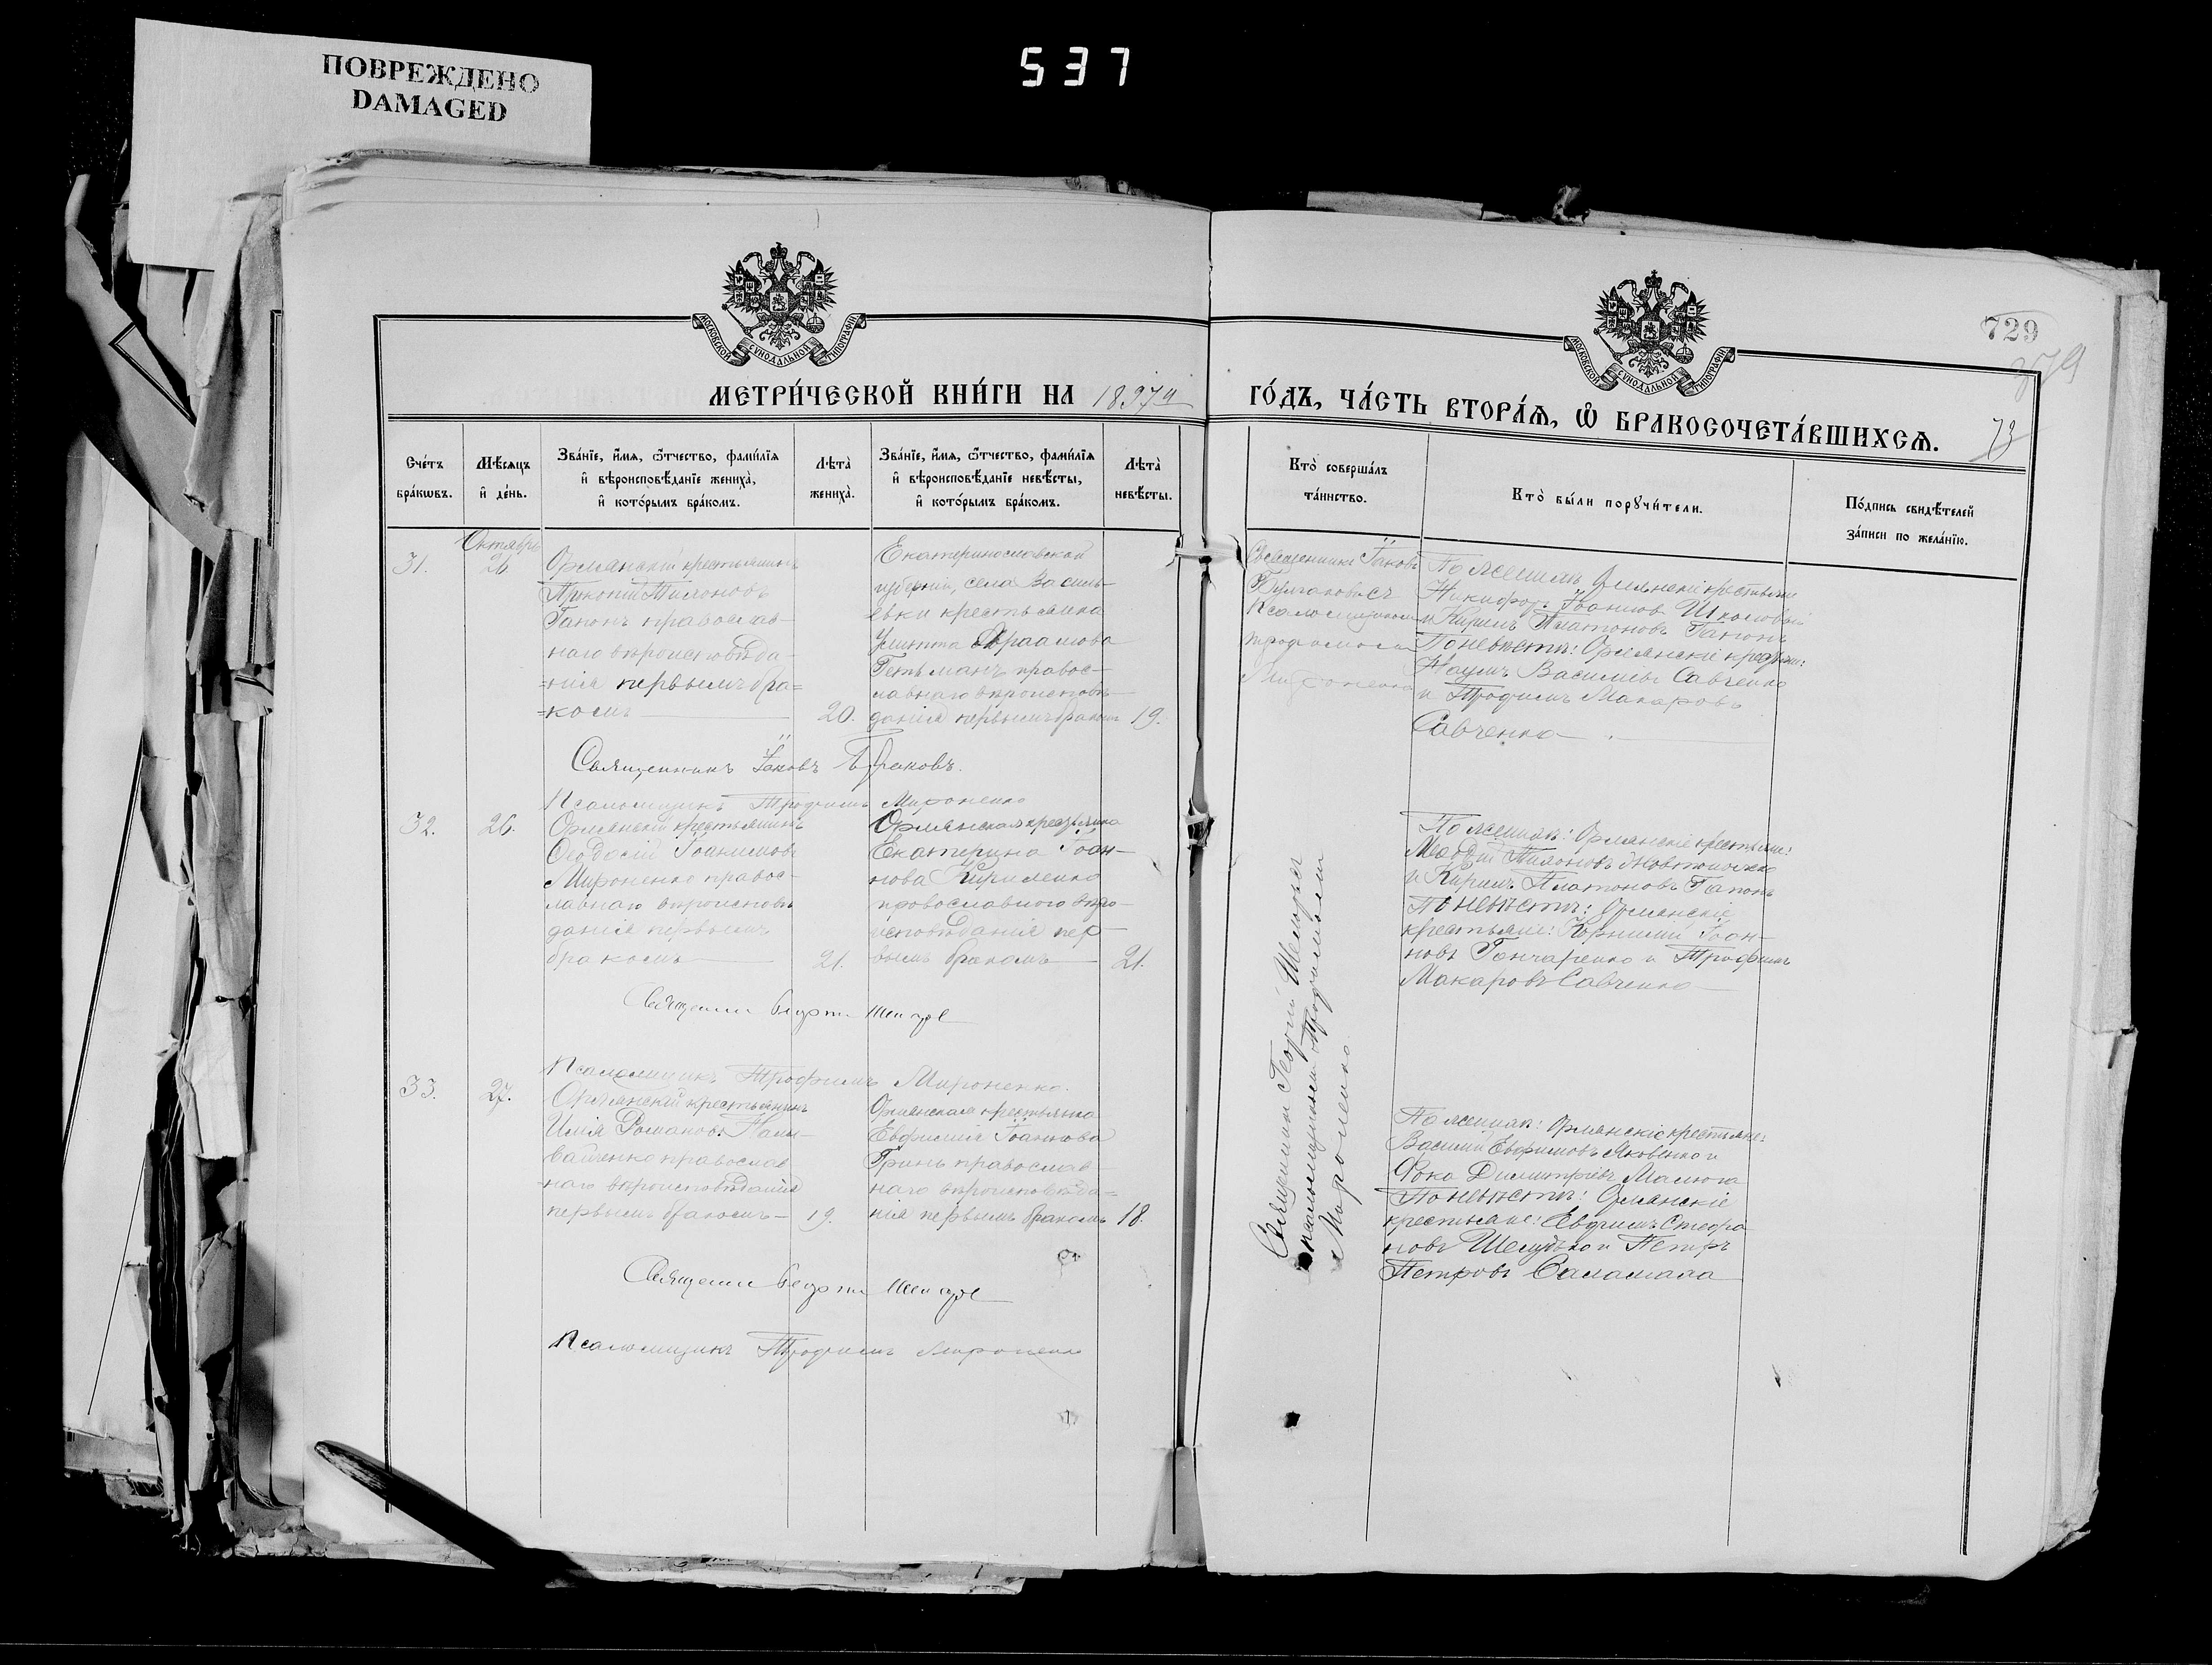 ПОВРЕЖДЕНО
DAMAGED
537
МОСКОВСКОЙ СѴНОДАЛЬНОЙ ТИПОГРАФІИ
МОСКОВСКОЙ СѴНОДАЛЬНОЙ ТИПОГРАФІИ
729
379
73
МЕТРИ́ЧЕСКОЙ КНИ́ГИ НА 1897й
ГО́ДЪ, ЧА́СТЬ ВТОРА́Ѧ, Ѿ БРАКОСОЧЕТА́ВШИХСѦ.
Сче́тъ
бра́кѡвъ.
Мѣ́сѧцъ
и҆ де́нь.
Зва́нїе, и҆́мѧ, ѻ҆́тчество, фами́лїѧ
и҆ вѣроисповѣ́данїе жениха̀,
и҆ кото́рымъ бра́комъ.
Лѣ́та
жениха̀.
Зва́нїе, и҆́мѧ, ѻ҆́тчество, фами́лїѧ
и҆ вѣроисповѣ́данїе невѣ́сты,
и҆ кото́рымъ бра́комъ.
Лѣ́та
невѣ́сты.
Кто̀ соверша́лъ
та́инство.
Кто̀ бы́ли порꙋчи́тели.
По́дпись свидѣ́телей
за́писи по жела́нїю.
31.
Октябрь
26
Орлянскій крестьянинъ
Прокопій
Гапонъ православ-
наго вѣроисповѣда-
=нія первымъ бра=
=комъ
20.
Екатеринославской
губерніи, села Василь-
евки крестьянка
Авраамова
Гетьманъ правос-
лавнаго вѣроисповѣ-
данія первымъ бракомъ
19.
Священникъ Іаковъ
Булгаковъ съ
Псаломщикомъ
Трофимомъ
Мироненко
По женихѣ: Орлянскіе крестьяне
Никифоръ Іоанновъ
и Кирилъ Платоновъ Гапонъ
По невѣстѣ: Орлянскіе крестьяне:
Наумъ Васильевъ Савченко
и Трофимъ Макаровъ
Савченко
Священникъ Іаковъ
Псаломщикъ Трофимъ Мироненко
32.
26.
Орлянскій крестьянинъ
Ѳеодосій Іоанновъ
Мироненко правос-
лавнаго вѣроисповѣ
данія первымъ
бракомъ
21.
Орлянская крестьянка
Екатерина Іоан-
нова Кириленко
православнаго вѣро-
исповѣданія пер-
вымъ бракомъ
21.
Священникъ Георгій
съ псаломщикомъ Трофимомъ
Мироненко
По женихѣ: Орлянскіе крестьяне:
и Кирилъ Платоновъ Гапонъ
По невѣстѣ: Орлянскіе
крестьяне: Корнилій Іоан-
новъ Гончаренко и Трофимъ
Макаровъ Савченко
Священникъ Георгій
Псаломщикъ Трофимъ Мироненко.
33.
27.
Орлянскій крестьянинъ
Илія Романовъ Нали-
вайченко православ
-наго вѣроисповѣданія
первымъ бракомъ
19.
Орлянская крестьянка
Евфимія Іоаннова
Гринь православ-
наго вѣроисповѣда=
нія первымъ бракомъ
18.
По женихѣ: Орлянскіе крестьяне:
Василій Евфимовъ Яковенко и
Фока Димитріевъ Малюга
По невѣстѣ: Орлянскіе
крестьяне: Евфимъ Стефа
новъ Шелудько и Петръ
Петровъ Саламаха
Священникъ Георгій
Псаломщикъ Трофимъ Мироненко